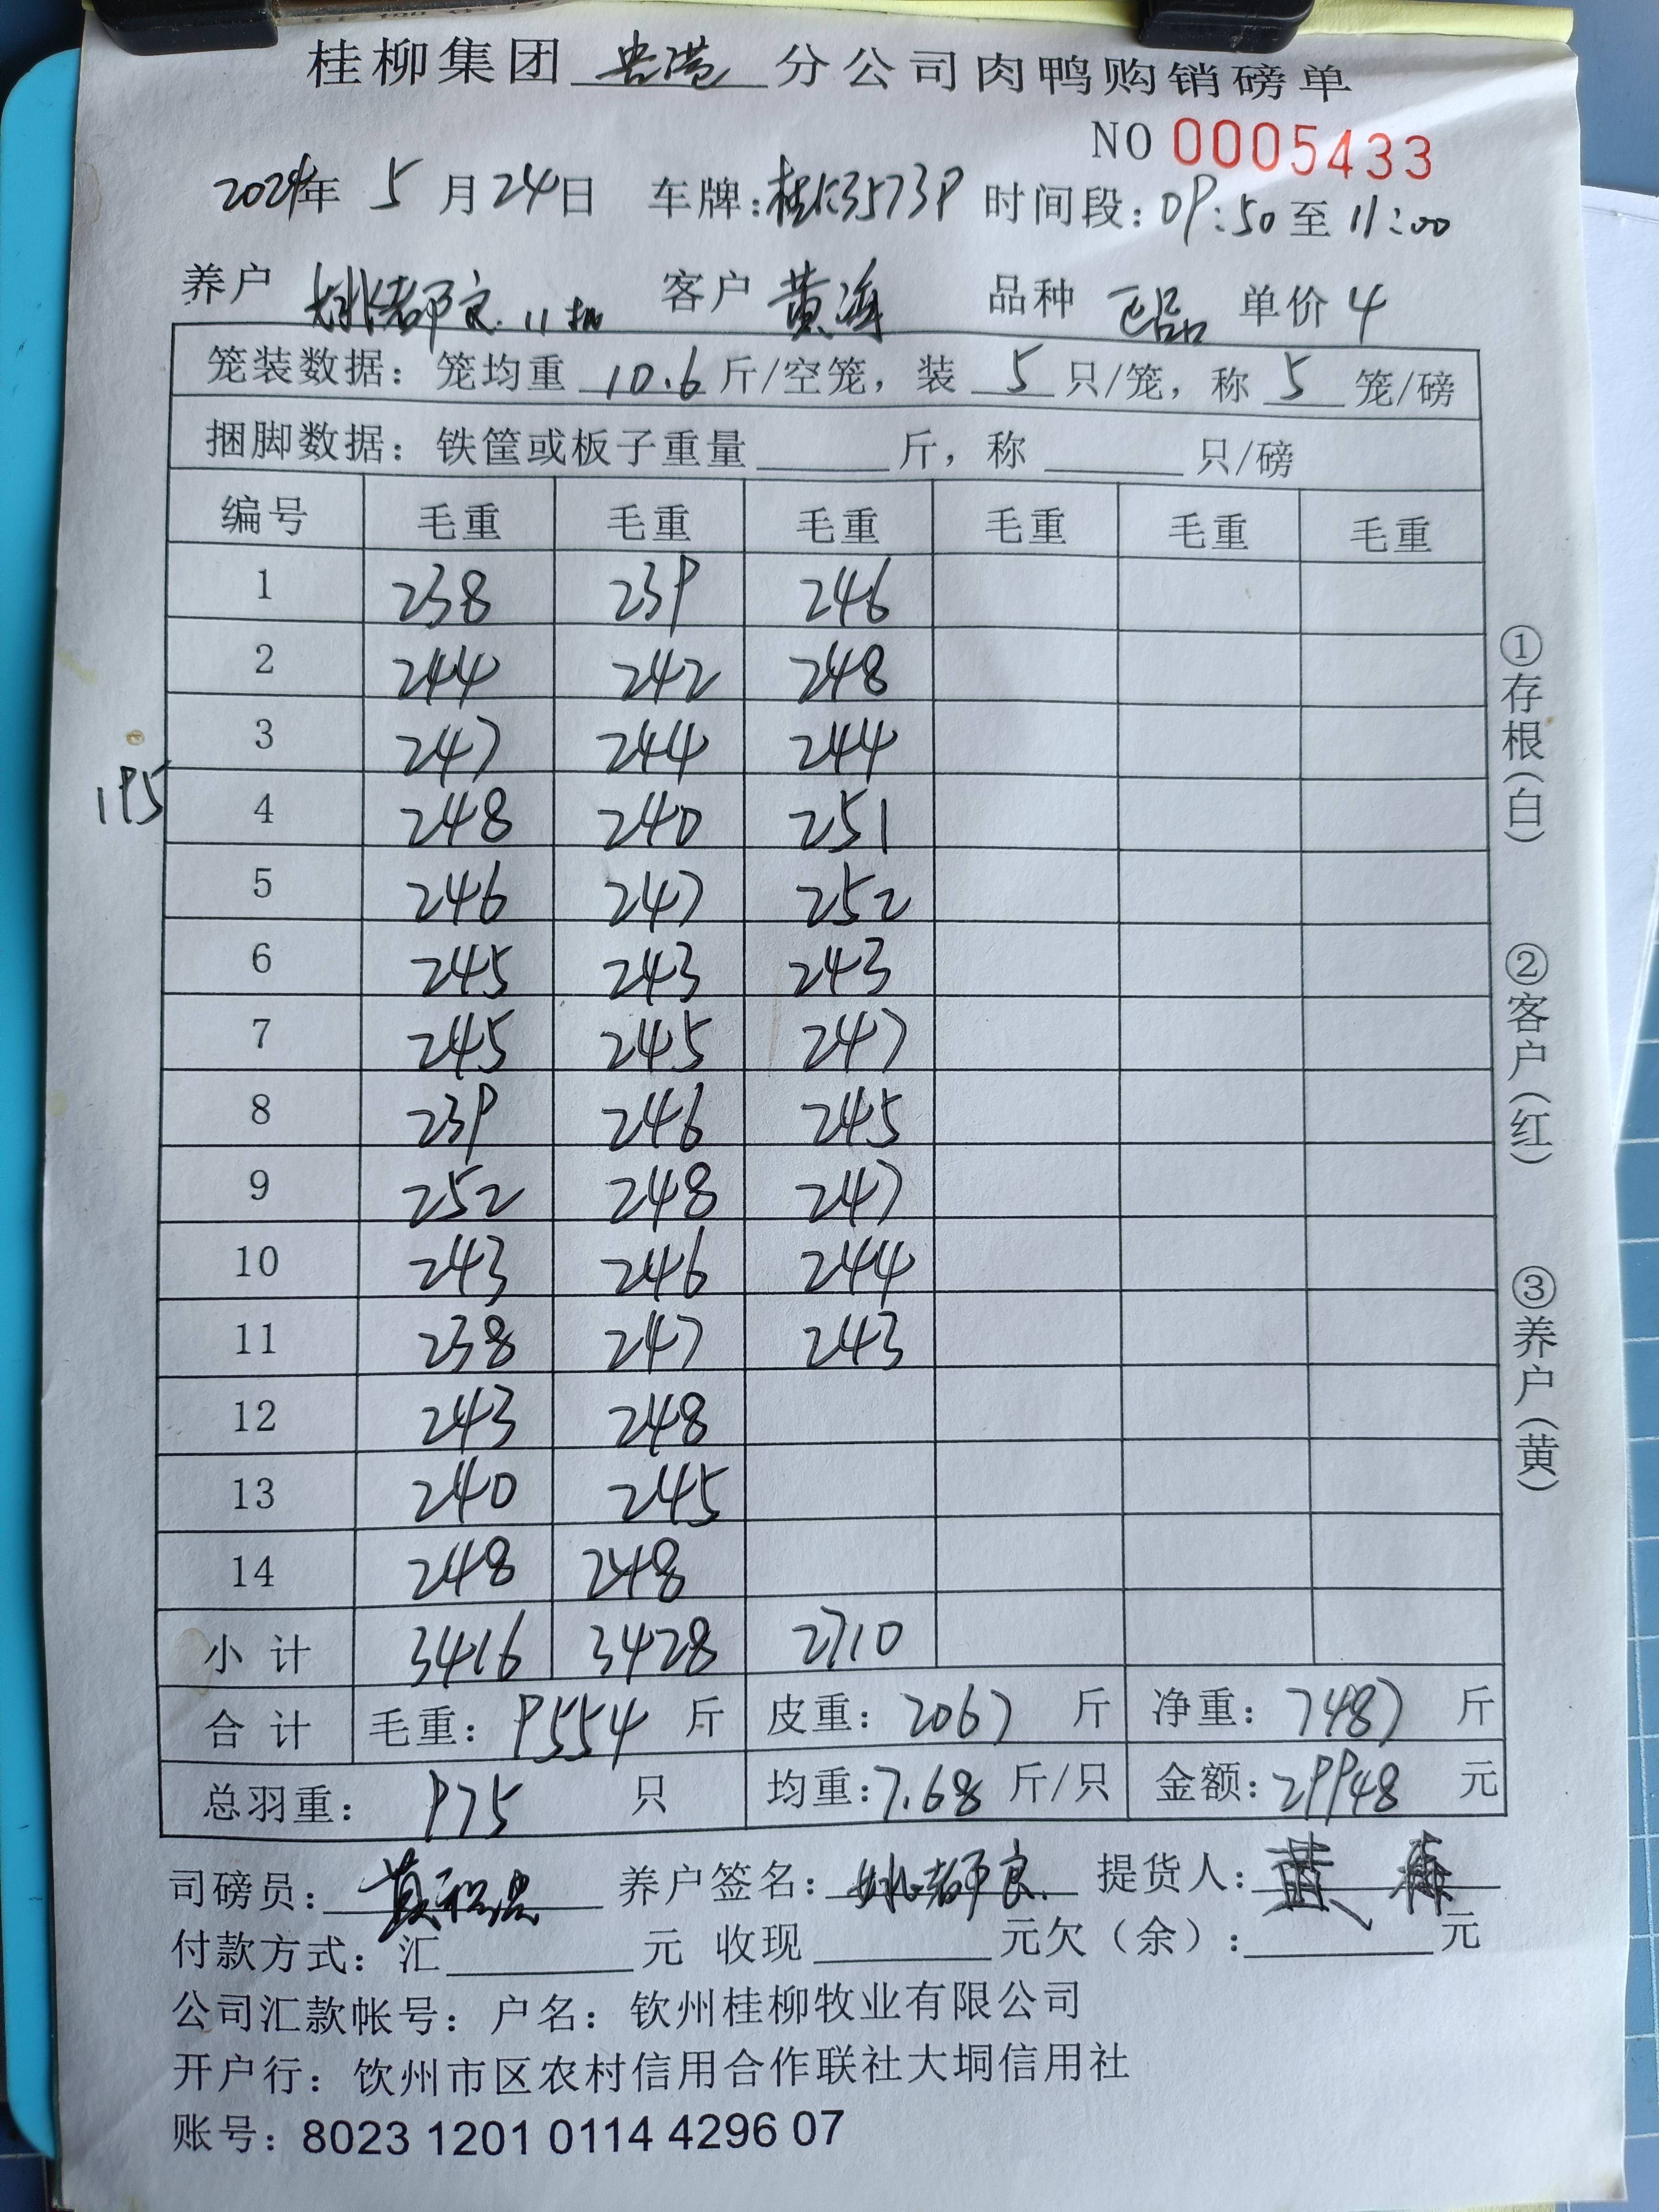 桂柳集团 贵港 分公司肉鸭购销磅单
NO 0005433
2024年 5 月 24日 车牌: 3573P 时间段: 09:50 至 11:00
养户 姚都良 11批 客户 黄海 品种 正品 单价 4
笼装数据: 笼均重 10.6 斤/空笼, 装 5 只/笼, 称 5 笼/磅
捆脚数据: 铁筐或板子重量 斤, 称 只/磅
编号 毛重 毛重 毛重 毛重 毛重 毛重
1 238 239 246
2 244 242 248
3 247 244 244
195
4 248 240 251
5 246 247 252
6 245 243 243
7 245 245 247
8 239 246 245
9 252 248 247
10 243 246 244
11 238 247 243
12 243 248
13 240 245
14 248 248
小计 3416 3428 2710
合计 毛重: 9554 斤 皮重: 2067 斤 净重: 7487 斤
总羽重: 975 只 均重: 7.68 斤/只 金额: 29948 元
司磅员: 养户签名: 姚都良 提货人: 黄海
付款方式: 汇 元 收现 元欠(余): 元
公司汇款帐号: 户名: 钦州桂柳牧业有限公司
开户行: 饮州市区农村信用合作联社大垌信用社
账号: 8023 1201 0114 4296 07
①存根(白)
②客户(红)
③养户(黄)